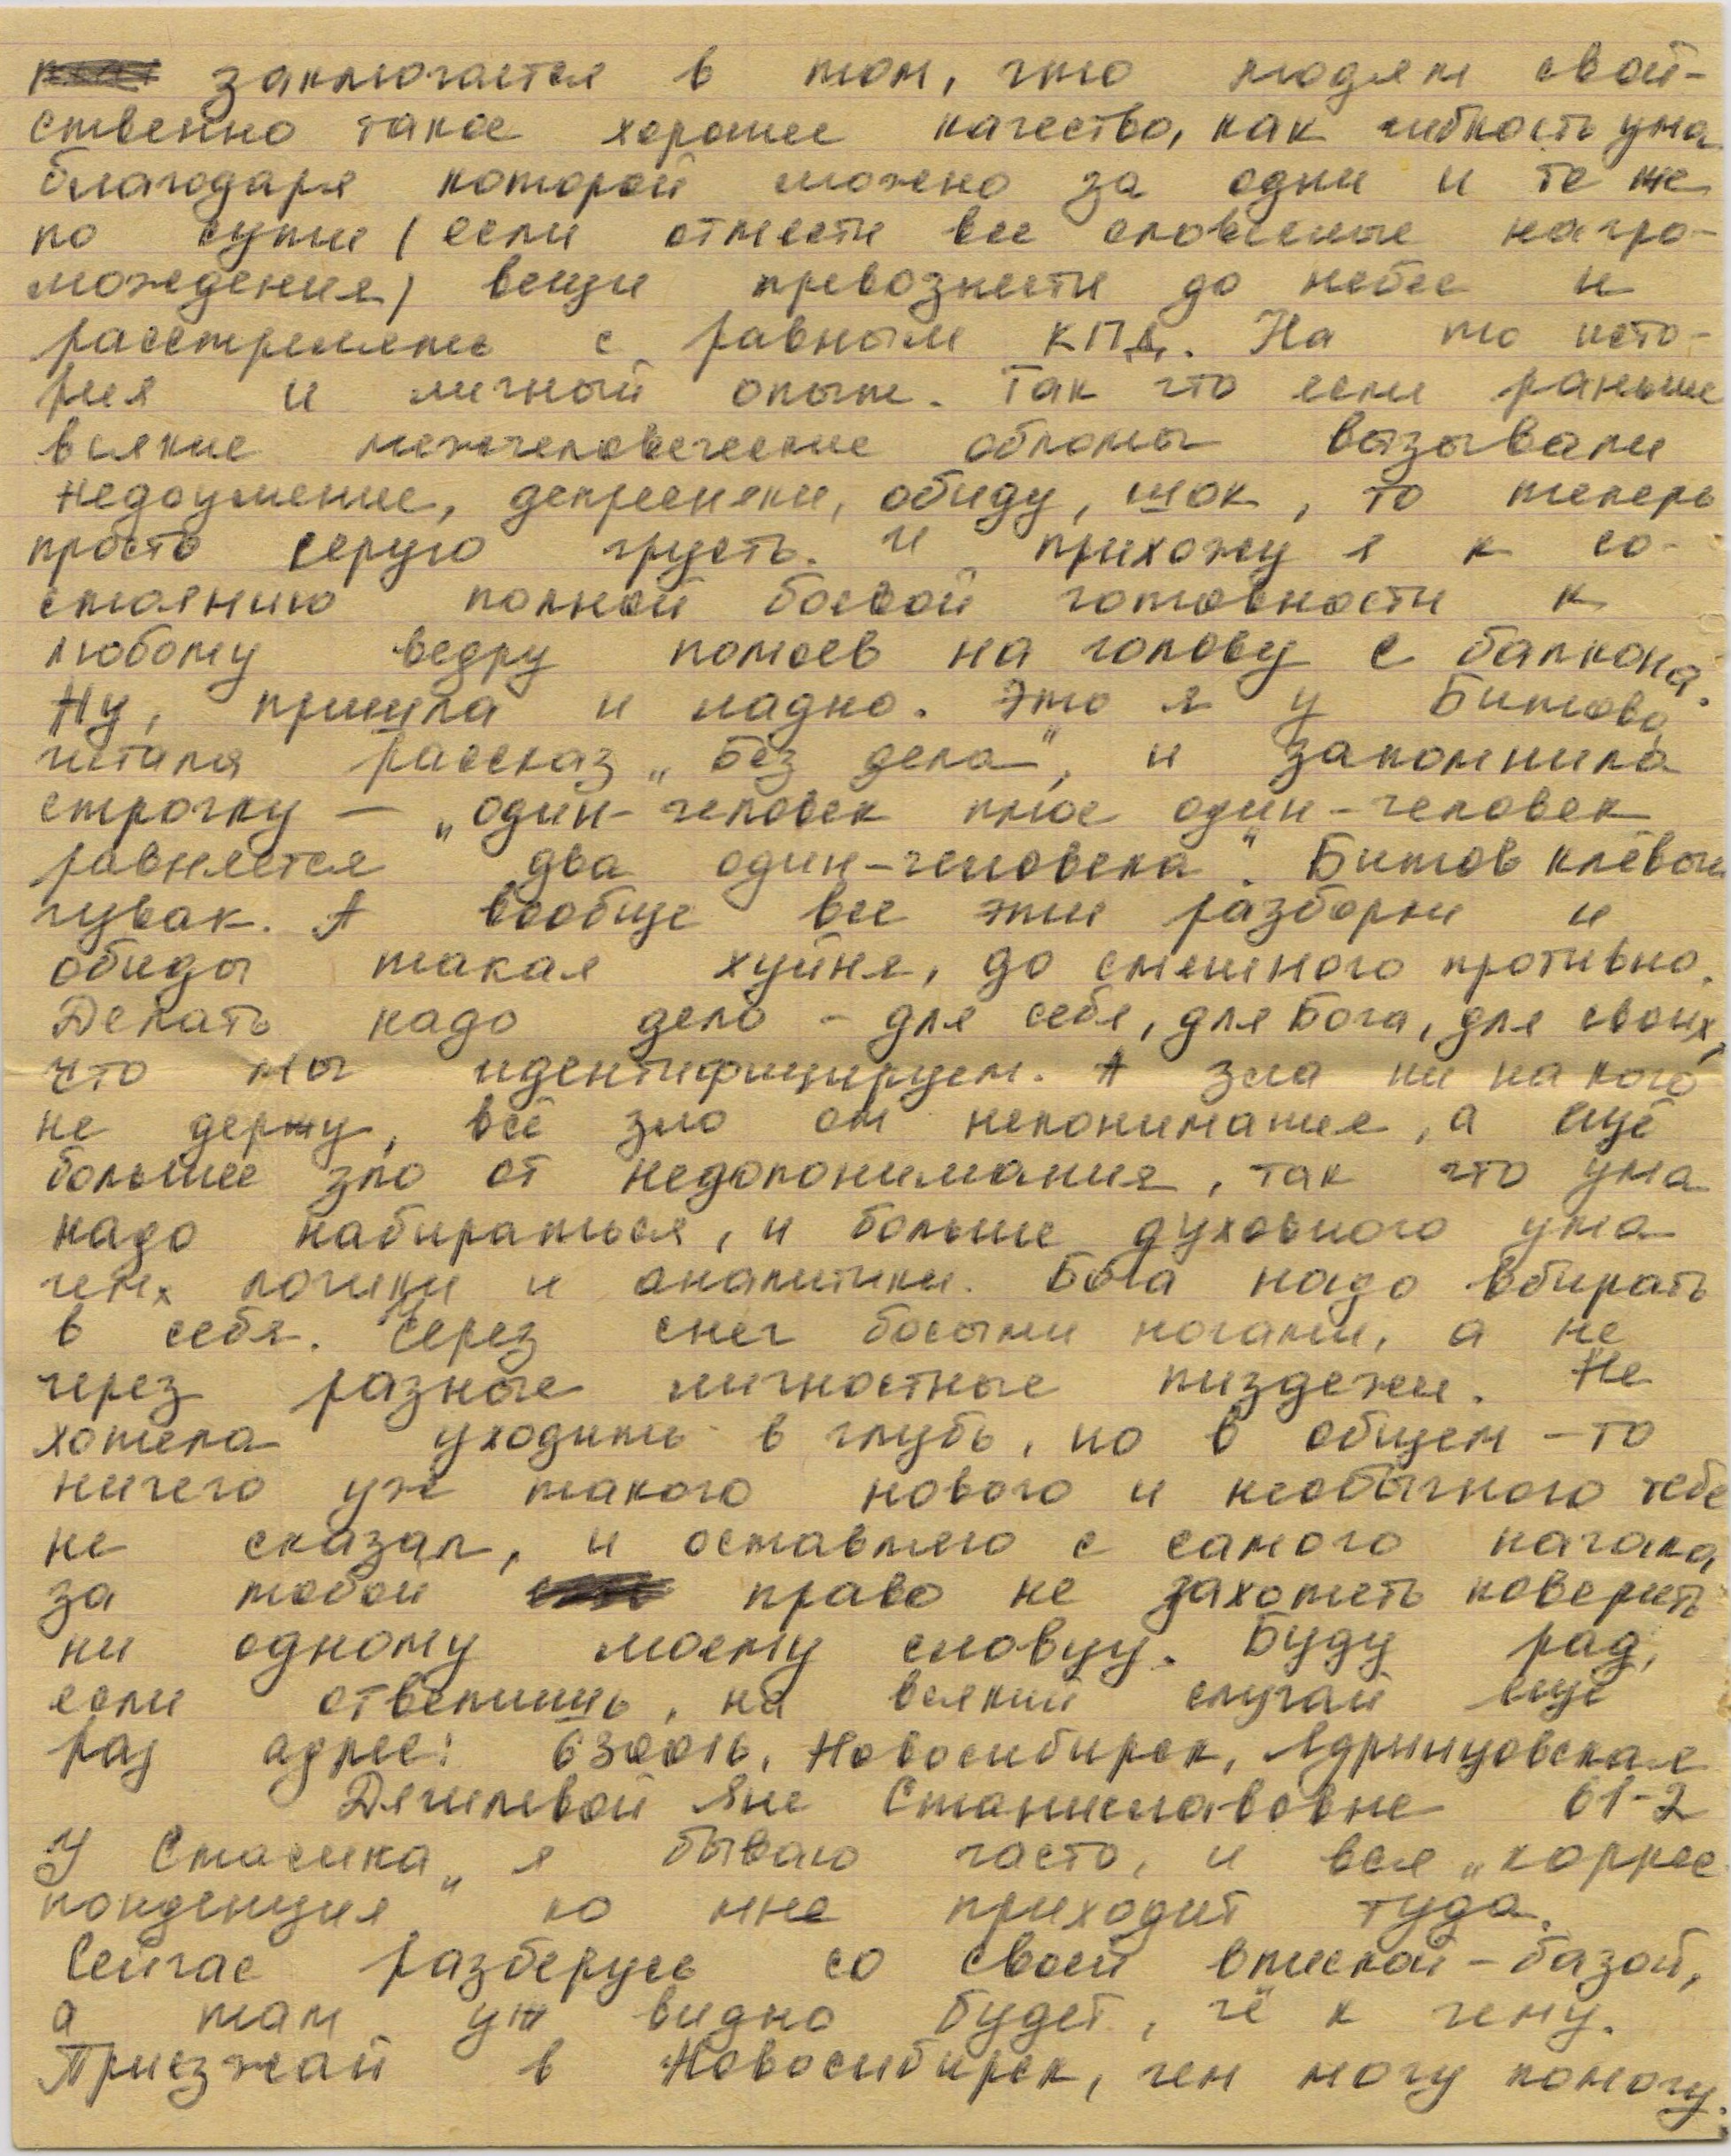 заключается в том, что людям свой-
ственно такое хорошее качество, как гибкость ума
благодаря которой можно за одни и те же
по сути (если отмести все словесные нагро-
мождения) вещи превознести до небес и
расстрелять с равным КПД. На то исто-
рия и личный опыт. Так что если раньше
всякие межчеловеческие обломы вызывали
недоумение, депресняки, обиду, шок, то теперь
просто серую грусть. И прихожу я к со-
стоянию полной боевой готовности к
любому ведру помоев на голову с балкона.
Ну, пришла и ладно. Это я у Битова
читала рассказ „Без дела", и запомнила
строчку — „один-человек плюс один-человек
равняется два один-человека". Битов клёвый
чувак. А вообще все эти разборки и
обиды такая хуйня, до смешного противно.
Делать надо дело – для себя, для Бога, для своих,
что мы идентифицируем. А зла ни на кого
не держу, всё зло от непонимания, а ещё
большее зло от недопонимания, так что ума
надо набираться, и больше духовного ума
чем логики и аналитики. Бога надо вбирать
в себя. Через снег босыми ногами, а не
через разные личностные пиздежи. Не
хотела уходить в глубь, но в общем-то
ничего уж такого нового и необычного тебе
не сказал, и оставляю с самого начала
за тобой право не захотеть поверить
ни одному моему словцу. Буду рад,
если ответишь, на всякий случай ещё
раз адрес: 630016, Новосибирск, Ядринцовская
Дягилевой Яне Станиславовне 61-2
У Стасика я бываю часто, и вся „коррес
понденция" ко мне приходит туда.
Сейчас разберусь со своей впиской-базой,
а там уж видно будет, чё к чему.
Приезжай в Новосибирск, чем могу помогу.